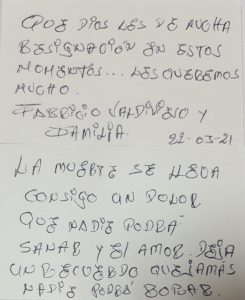 QUE DIOS LES DE MUCHA
RESIGNACIÓN EN ESTOS
MOMENTOS... LES QUEREMOS
MUCHO.
FABRICIO VALDIVIESO Y
FAMILIA.
22-03-21
LA MUERTE SE LLEVA
CONSIGO UN DOLOR
QUE NADIE PODRÁ
SANAR Y EL AMOR DEJA
UN RECUERDO QUE JAMÁS
NADIE PODRÁ BORRAR.